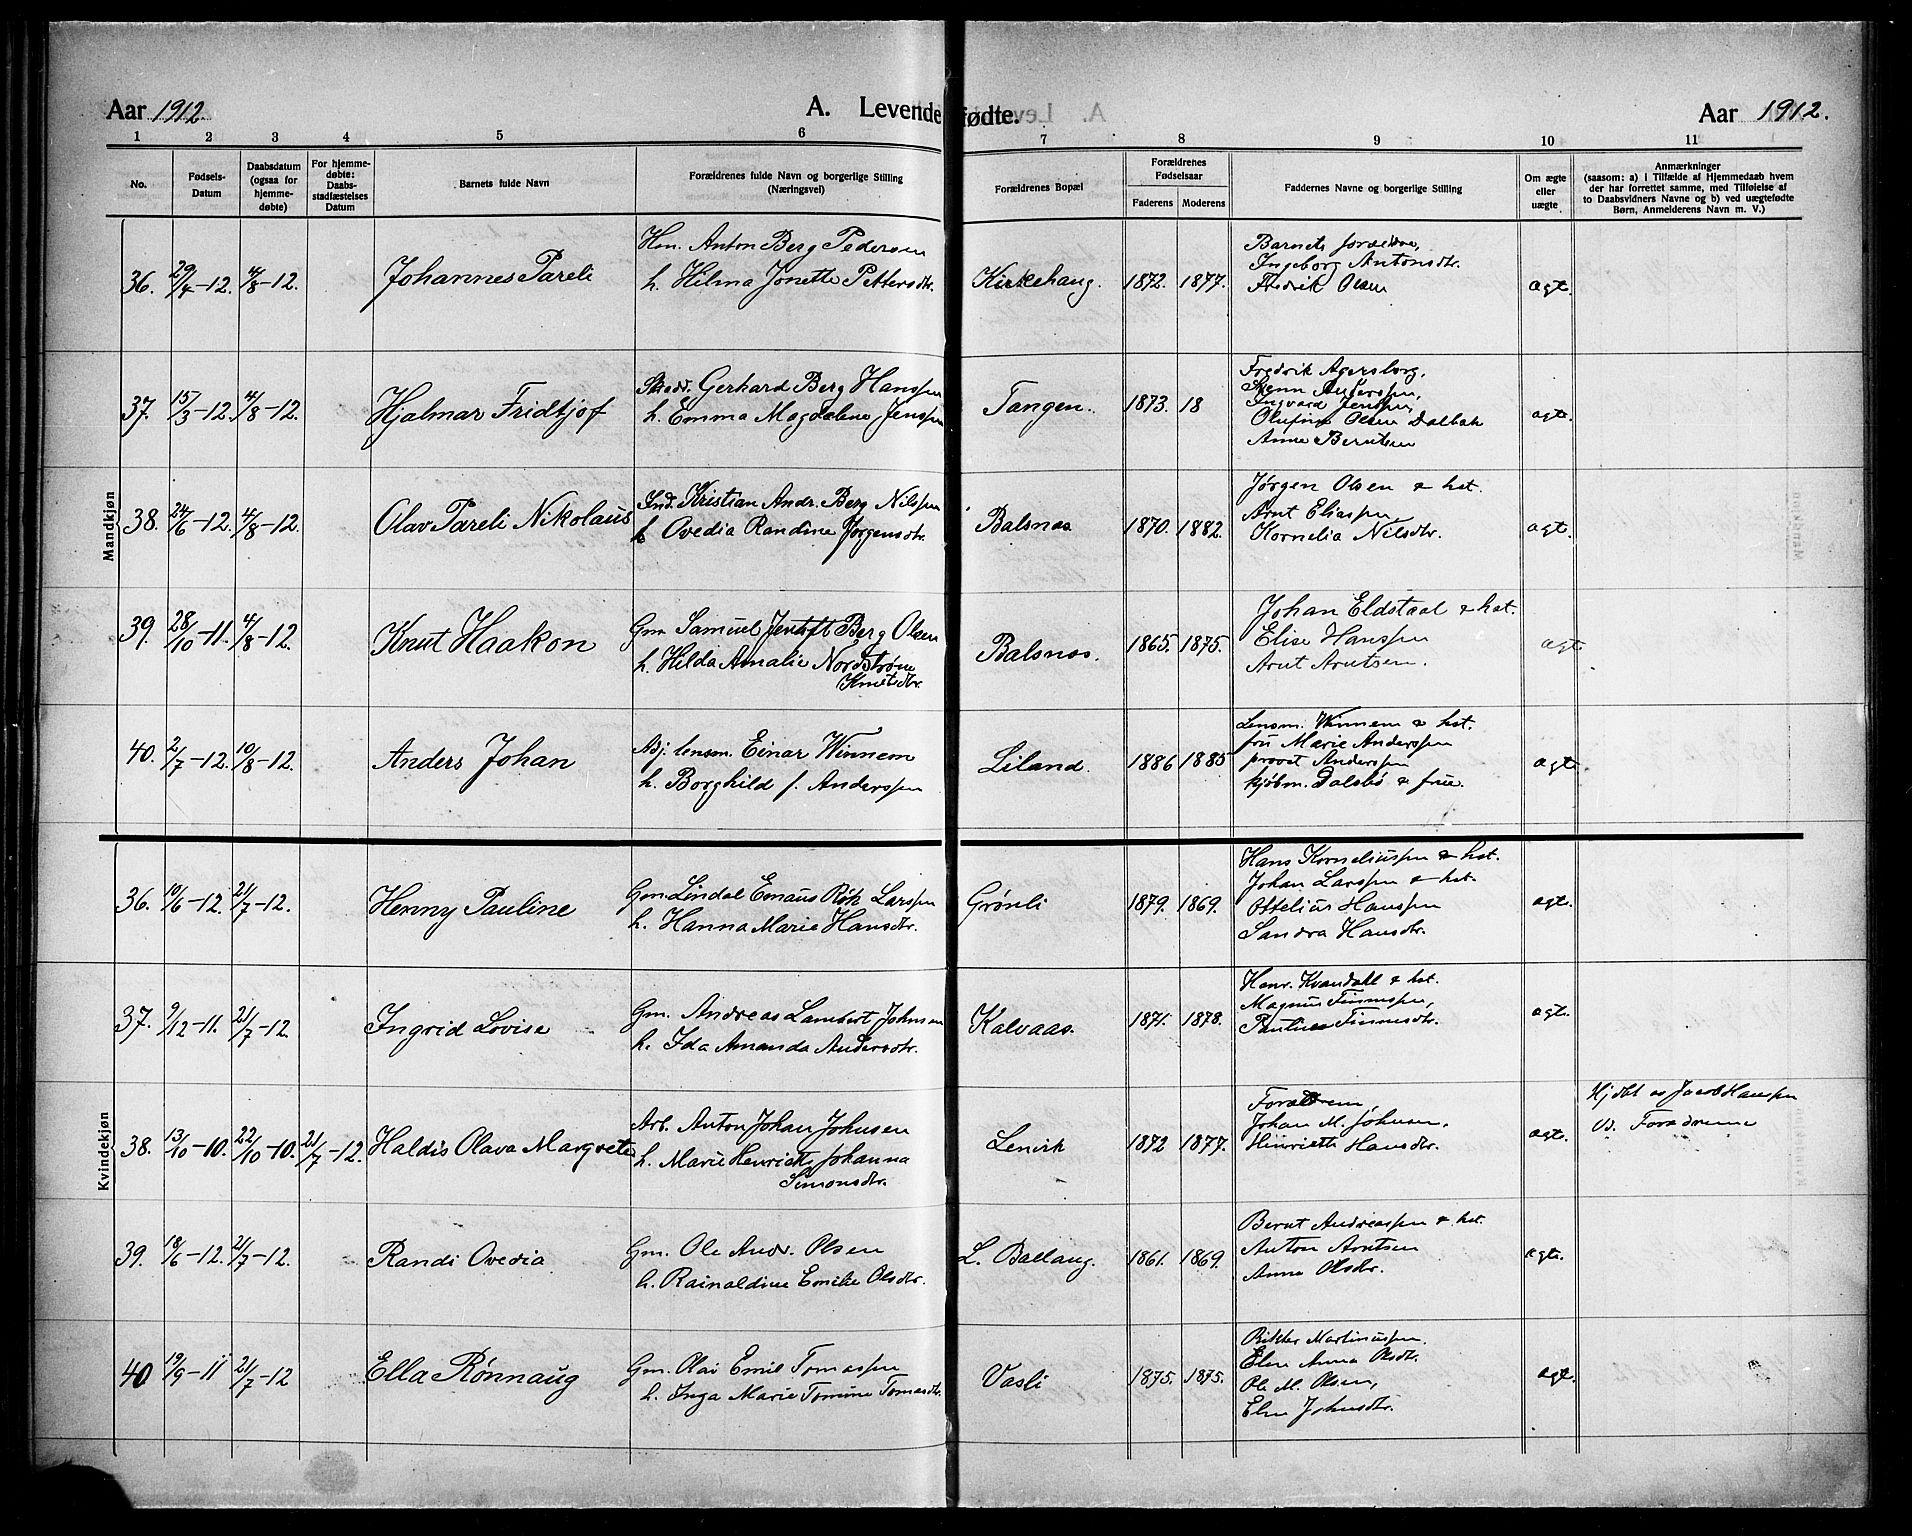 Aar 1912. A. Levende fødte. Aar 1912.
1 2 3 4 5 6 7 8 9 10 11
No. Fødsels-Datum Daabsdatum (ogsaa for hjemme-døbte) For hjemme-døbte: Daabs-stadfæstelses Datum Barnets fulde Navn Forældrenes fulde Navn og borgerlige Stilling (Næringsvei) Forældrenes Bopæl Forældrenes Fødselsaar Faderens Moderens Faddernes Navne og borgerlige Stilling Om ægte eller uægte Anmærkninger (saasom: a) i Tilfælde af Hjemmedaab hvem der har forrettet samme, med Tilføielse af to Daabsvidners Navne og b) ved uægtefødte Børn, Anmelderens Navn m. V.)
Mandkjøn
36. 29/4-12. 4/8-12. Johannes Pareli Hm. Anton Berg Pedersen Kirkehaug. 1872. 1877. Barnets forældre, ægt.
h. Hilma Jonette Pettersdtr. Ingeborg Antonsdtr.
Fredrik Olsen
37. 15/3-12. 4/8-12. Hjalmar Fridtjof Gerhard Berg Hanssen Tangen. 1873. 18 Fredrik Agersborg, ægt.
h. Emma Magdalene Jenssen Anderssen,
Ingvard Jenssen,
Olufine Olsen Dalbak
Anne Berntsen
38. 24/6-12. 4/8-12. Olav Pareli Nikolaus Ind. Kristian Andr. Berg Nilssen Balsnes 1870. 1882. Jørgen Olsen & hst. ægt.
h. Ovedia Randine Jørgensdtr. Arnt Eliassen,
Kornelia Nilsdtr.
39. 28/10-11. 4/8-12. Knut Haakon Gm. Samuel Jentoft Berg Olsen Balsnes. 1865. 1875. Johan Eldstaal & hst. ægt
h. Hilda Amalie Nordstrøm Elise Hanssen
Knutsdtr. Arnt Arntsen.
40. 2/7-12. 10/8-12. Anders Johan Adj. lensm. Einar Winnem Liland. 1886 1885 Lensm. Winnem & hst. ægt
h. Borghild f. Anderssen fru Marie Anderssen
provst Anderssen
kjøbm. Dalsbø & frue.
Kvindekjøn
36. 10/6-12. 21/7-12. Henny Pauline Gm. Lindal Emaus Røk Larssen Grønli 1879. 1869. Hans Korneliussen & hst. ægt.
h. Hanna Marie Hansdtr. Johan Larssen & hst.
Ottelius Hanssen
Sandra Hansdtr.
37. 9/12-11. 21/7-12. Ingrid Lovise Gm. Andreas Lambert Johnsen Kalvaas. 1871. 1878. Henr. Kvandahl & hst. ægt.
h. Ida Amanda Andersdtr. Magnus Finnessen,
Pauline Finnesdtr.
38. 13/10-10. 22/10-10. 21/7-12. Haldis Olava Margrete Arb. Anton Johan Johnsen Lenvik 1872 1877. Forældrene, ægt. Hjdbt av Jacob Hanssen
h. Marie Henriette Johanna Johan M. Johnsen, Forældrene
Simonsdtr. Hinriette Hansdtr.
39. 18/6-12. 21/7-12. Randi Ovedia Gm. Ole Andr. Olsen L. Ballang. 1861. 1869. Bernt Andreassen & hst. ægt.
h. Rainaldine Emilie Olsdtr. Anton Arntsen
Anna Olsdtr.
40 19/9-11 21/7-12 Ella Rønnaug Gm. Olai Emil Tomassen Vasli 1875. 1875. Martinussen, ægt.
h. Inga Marie Tomine Tomasdtr. Elen Anna Olsdtr.
Ole M. Olsen,
Elen Johnsdtr.